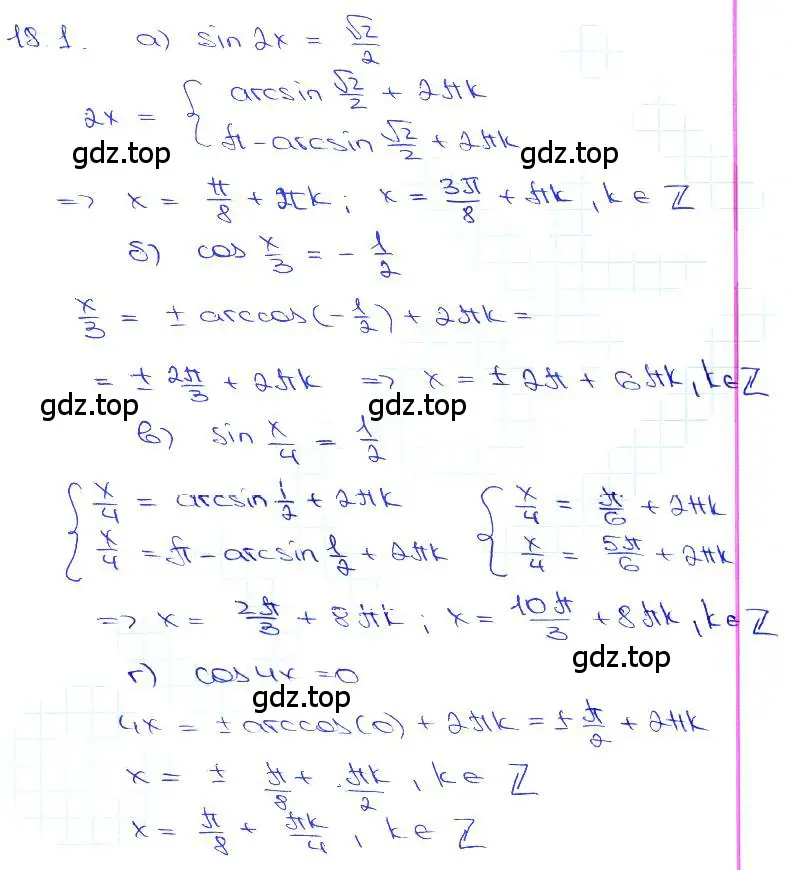 18.1. а) sin 2x = √2/2
2x = { arcsin √2/2 + 2πk
π - arcsin √2/2 + 2πk
gdz.top gdz.top
=> x = π/8 + πk; x = 3π/8 + πk, k ∈ Z
б) cos x/3 = - 1/2
x/3 = ± arccos(-1/2) + 2πk =
= ± 2π/3 + 2πk => x = ± 2π + 6πk, k ∈ Z
gdz.top gdz.top
в) sin x/4 = 1/2
{ x/4 = arcsin 1/2 + 2πk { x/4 = π/6 + 2πk
x/4 = π - arcsin 1/2 + 2πk x/4 = 5π/6 + 2πk
=> x = 2π/3 + 8πk; x = 10π/3 + 8πk, k ∈ Z
gdz.top
г) cos 4x = 0
gdz.top
4x = ± arccos(0) + 2πk = ± π/2 + 2πk
x = ± π/8 + πk/2, k ∈ Z
x = π/8 + πk/4, k ∈ Z